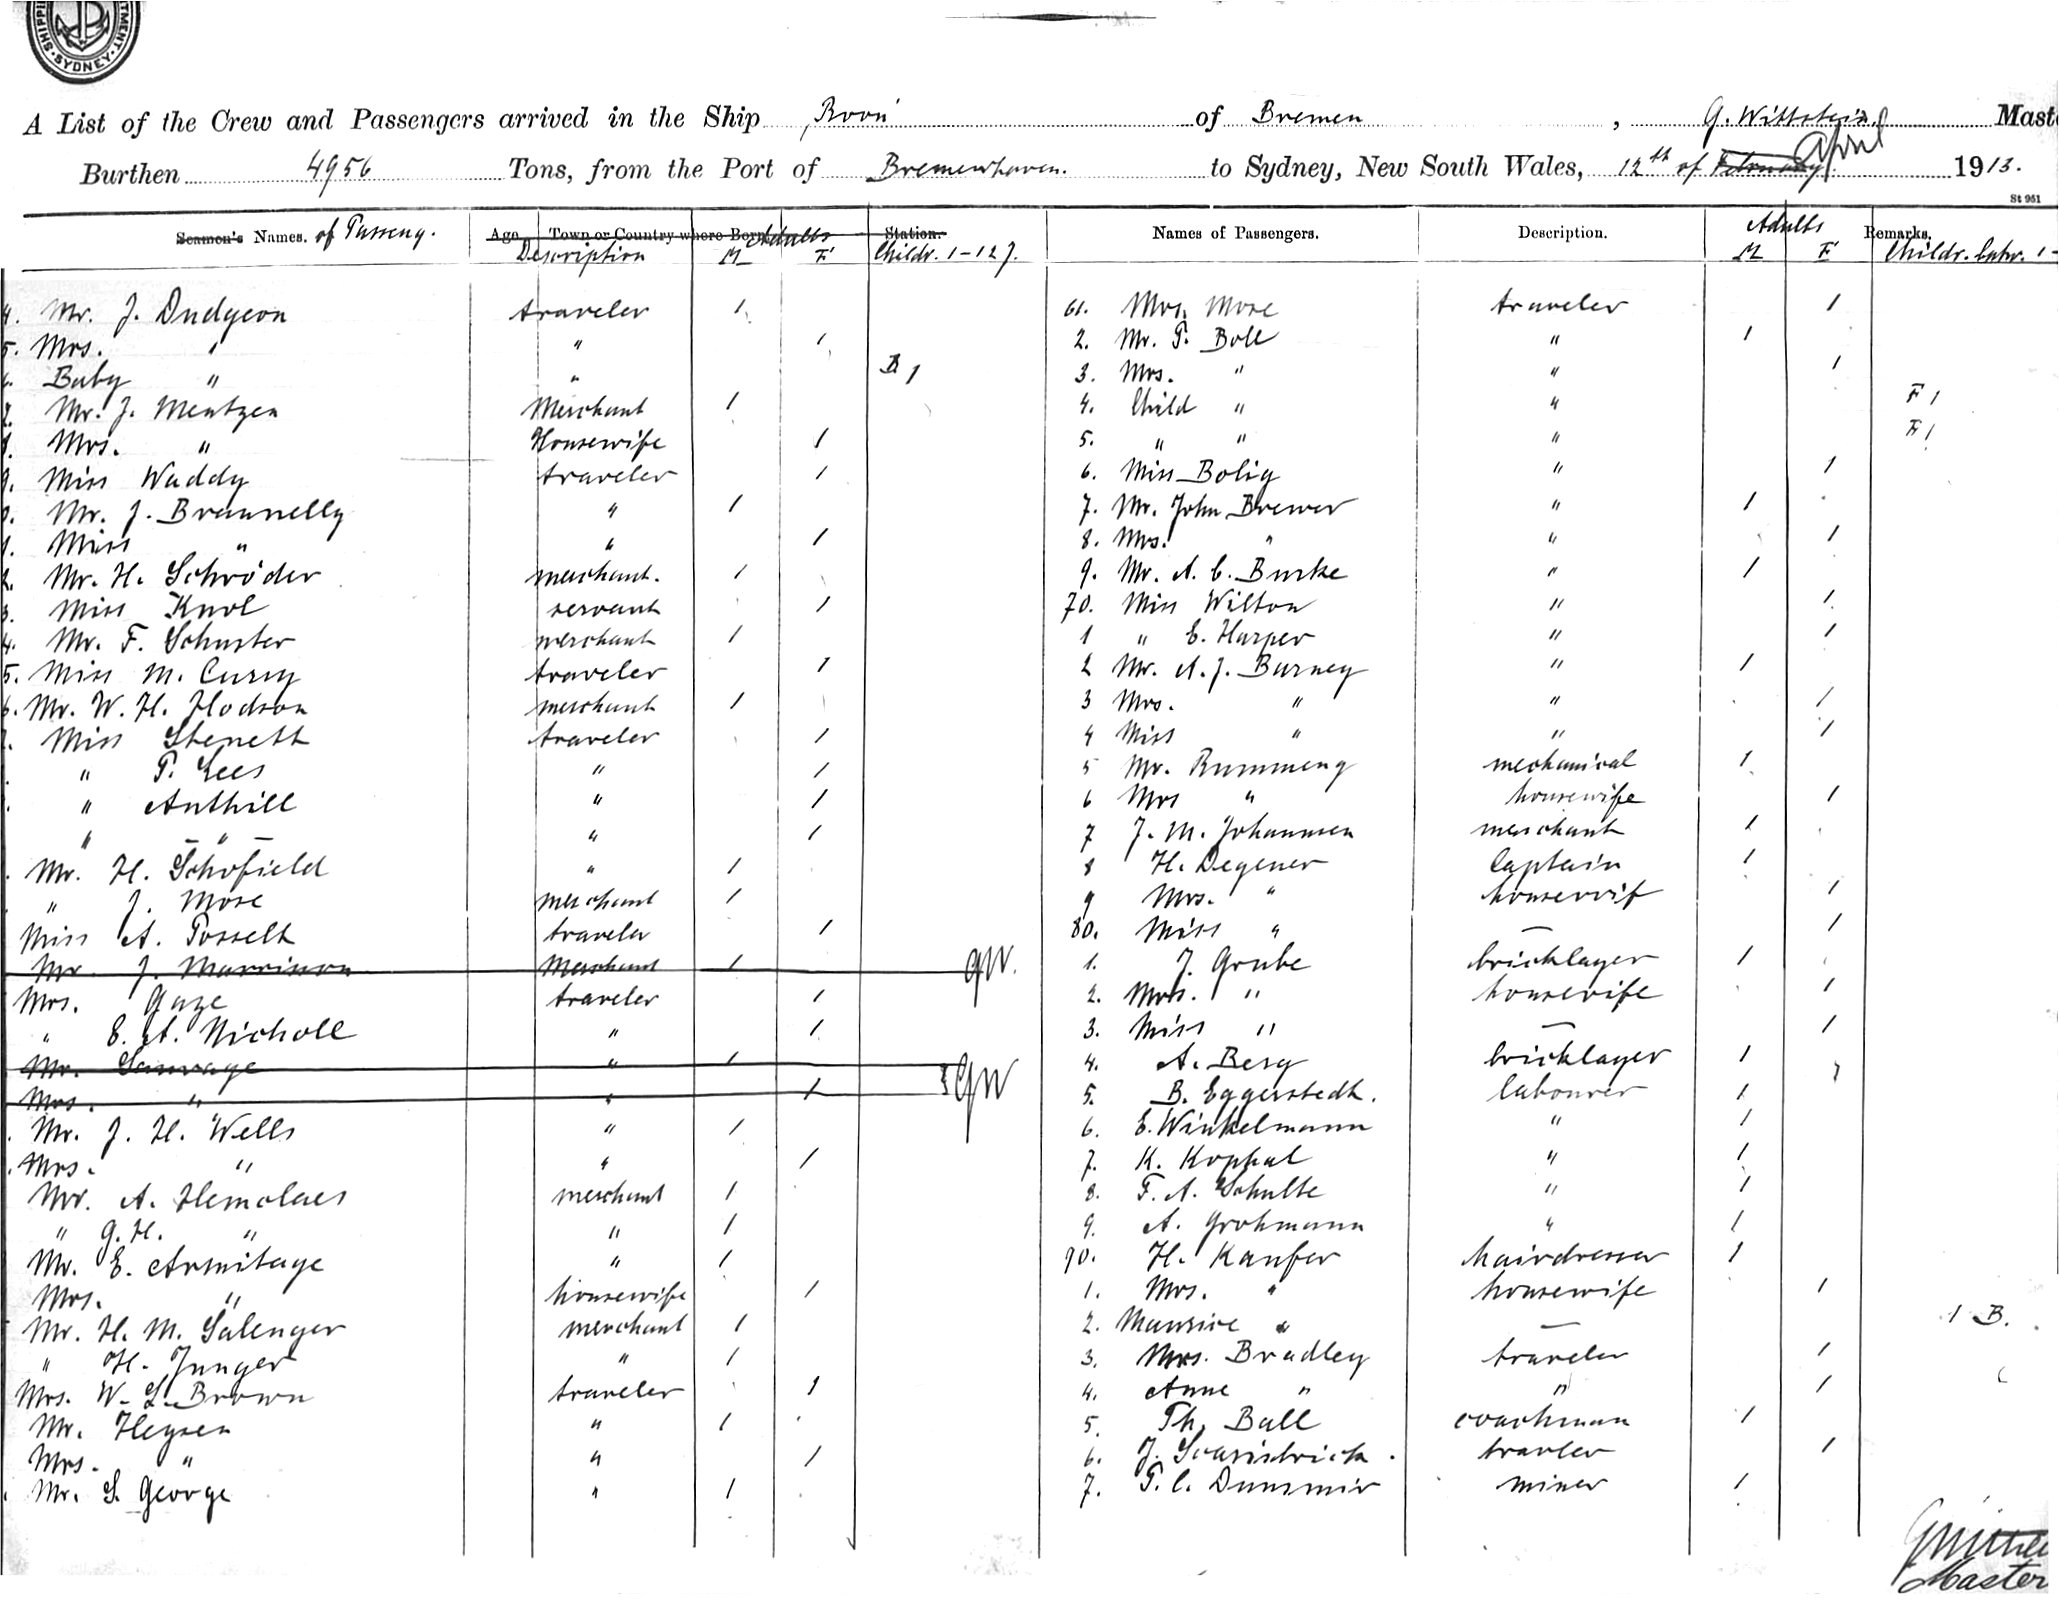 SHIPPING DEPARTMENT · SYDNEY ·
A List of the Crew and Passengers arrived in the Ship Roon of Bremen , G. Wittstein Mast
Burthen 4956 Tons, from the Port of Bremerhaven. to Sydney, New South Wales, 12th of February April 1913.
St 951
Seamen's Names. of Passeng. Age Town or Country where Born Adults Station.
Description M F Childr. 1-12 J.
4. Mr. J. Dudgeon traveler 1
5. Mrs. " " 1
6. Baby " " B 1
7. Mr. J. Mentzen Merchant 1
8. Mrs. " Housewife 1
9. Miss Waddy traveler 1
0. Mr. J. Brannelly " 1
1. Miss " " 1
2. Mr. H. Schröder merchant. 1
3. Miss Knol servant 1
4. Mr. F. Schuster merchant 1
5. Miss M. Curry traveler 1
6. Mr. W. H. Hodson merchant 1
7. Miss Stenett traveler 1
" P. Lees " 1
" Anthill " 1
" — " — " 1
Mr. H. Schofield " 1
" J. Mose merchant 1
Miss A. Posselt traveler 1
Mr J. Marrinon Merchant 1 GW.
Mrs. Gaze traveler 1
" E. A. Nicholl " 1
Mr. Sauvage " 1
Mrs. " " 1 GW
Mr. J. H. Wells " 1
Mrs. " " 1
Mr. A. Hemelaes merchant 1
" G. H. " " 1
Mr. E. Armitage " 1
Mrs. " housewife 1
Mr. H. M. Salenger merchant 1
" H. Junger " 1
Mrs. W. L. Brown traveler 1
Mr. Heysen " 1
Mrs. " " 1
Mr. S. George " 1
Names of Passengers. Description. Adults Remarks.
M F Childr. betw. 1-
61. Mrs. Mose traveler 1
2. Mr. P. Boll " 1
3. Mrs. " " 1
4. Child " " F 1
5. " " " F 1
6. Miss Bolig " 1
7. Mr. John Brewer " 1
8. Mrs. " " 1
9. Mr. A. C. Burke " 1
70. Miss Wilton " 1
1 " E. Harper " 1
2 Mr. A. J. Burney " 1
3 Mrs. " " 1
4 Miss " " 1
5 Mr. Rummeny mechanical 1
6 Mrs " housewife 1
7 J. M. Johannsen merchant 1
8 H. Degener Captain 1
9 Mrs. " housewif 1
80. Miss " — 1
1. J. Grube bricklayer 1
2. Mrs. " housewife 1
3. Miss " — 1
4. A. Berg bricklayer 1
5. B. Eggerstedt. labourer 1
6. E. Winkelmann " 1
7. K. Kophal " 1
8. F. A. Schulte " 1
9. A. Grohmann " 1
90. H. Kaufer hairdresser 1
1. Mrs. " housewife 1
2. Maurice " — 1 B.
3. Mrs. Bradley traveler 1
4. Anne " " 1
5. Th. Ball coachman 1
6. J. Scarisbrick. travler 1
7. P. C. Dunsmir miner 1
Master